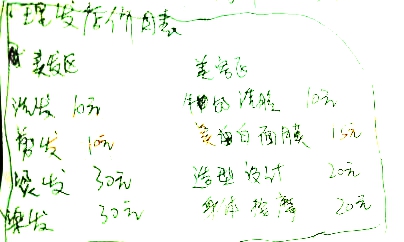 理发店价目表
美发区 美容区
洗发 10元 牛奶洗脸 10元
剪发 10元 美白面膜 15元
烫发 30元 造型设计 20元
染发 30元 身体按摩 20元